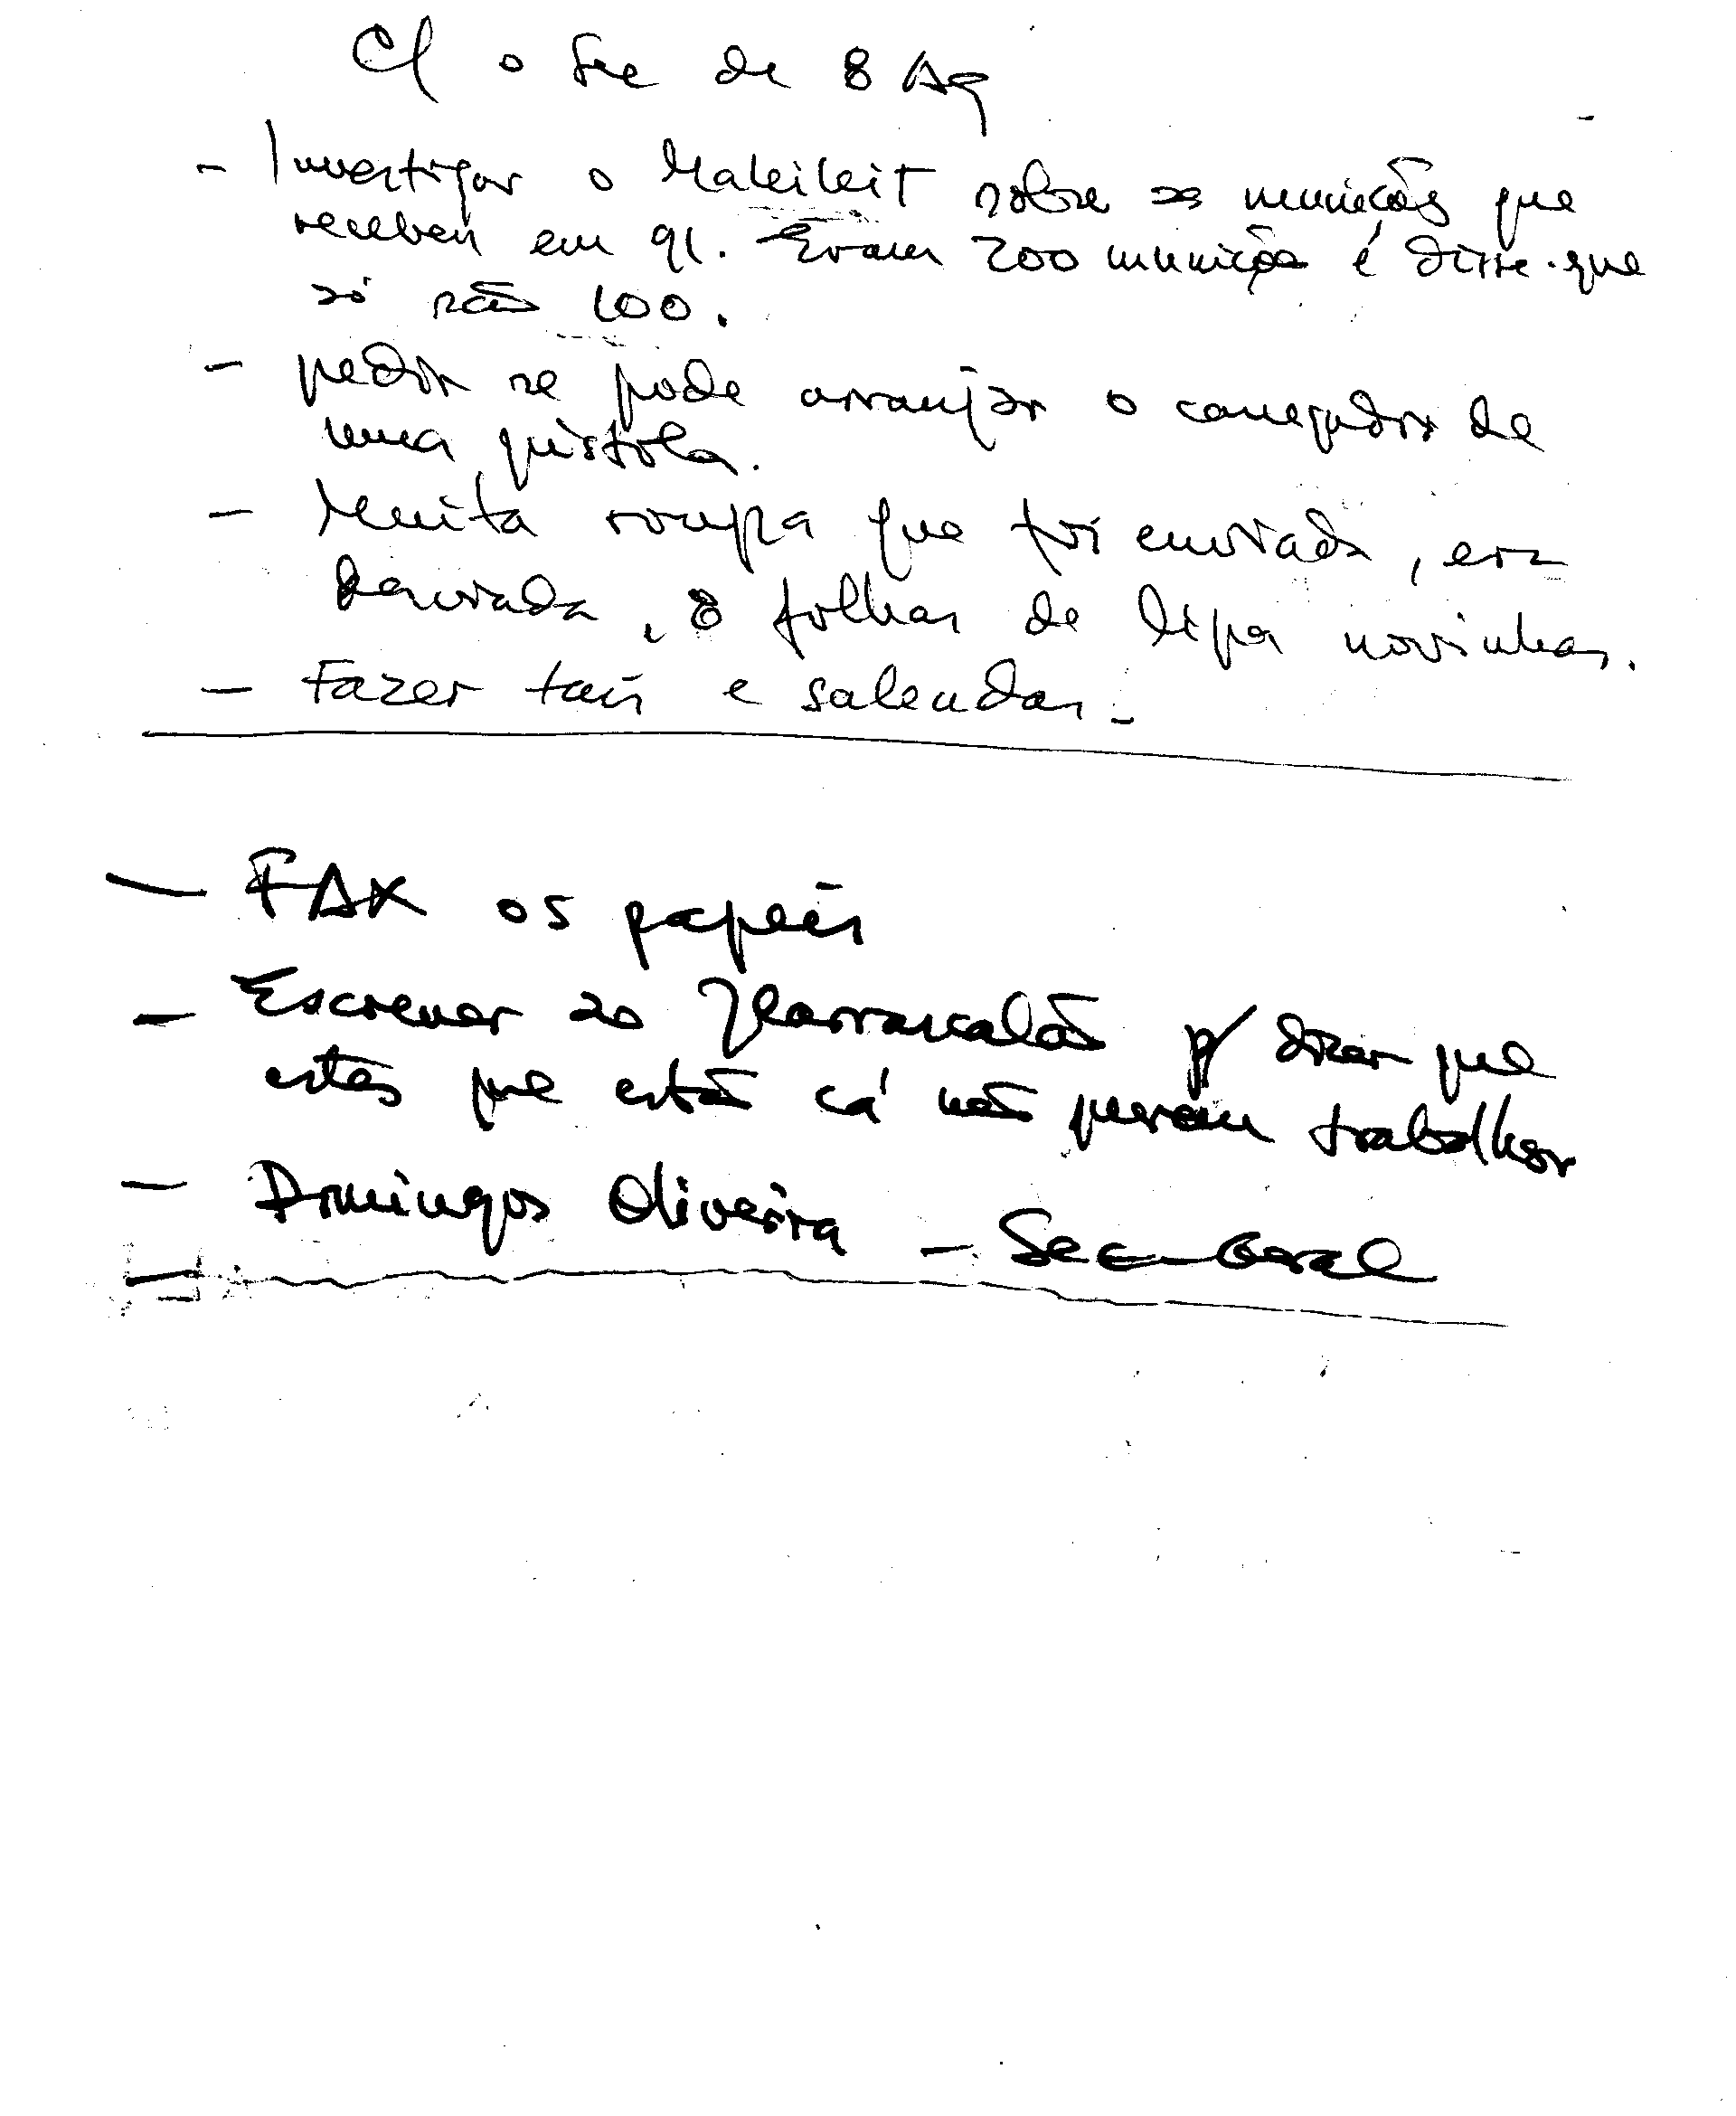 C/ o Sec de 8 Ag
- Investigar o Makikit sobre as munições que
receben em 91. Eram 200 munições é disse que
só são 100.
- pedir se pode arranjar o carregador de
uma pistola.
- Muita roupa que foi enviada, era
, 8 folhas de lipa novinhas.
- Fazer tais e salendas -
- FAX os papéis
- Escrever ao Carrascalão p/ dizer que
estes que estão cá não querem trabalhar
- Domingos Oliveira - Sec-Geral
-